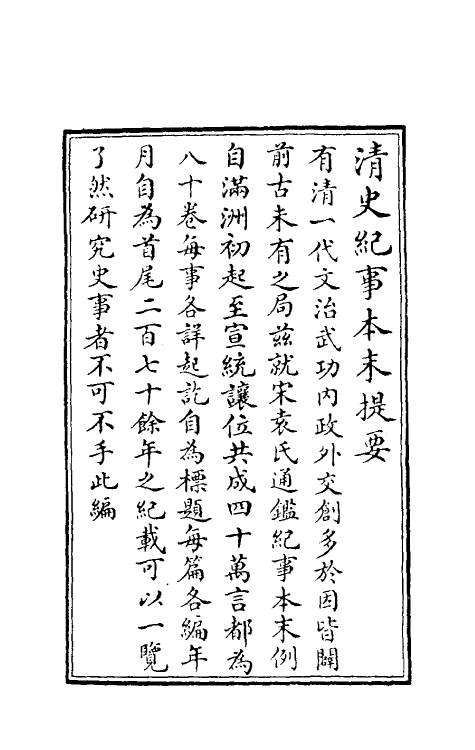 清史紀事本末提要
有清一代文治武功內政外交創多於因皆闢
前古未有之局茲就宋袁氏通鑑紀事本末例
自滿洲初起至宣統讓位共成四十萬言都為
八十卷每事各詳起訖自為標題每篇各編年
月自為首尾二百七十餘年之紀載可以一覽
了然研究史事者不可不手此編